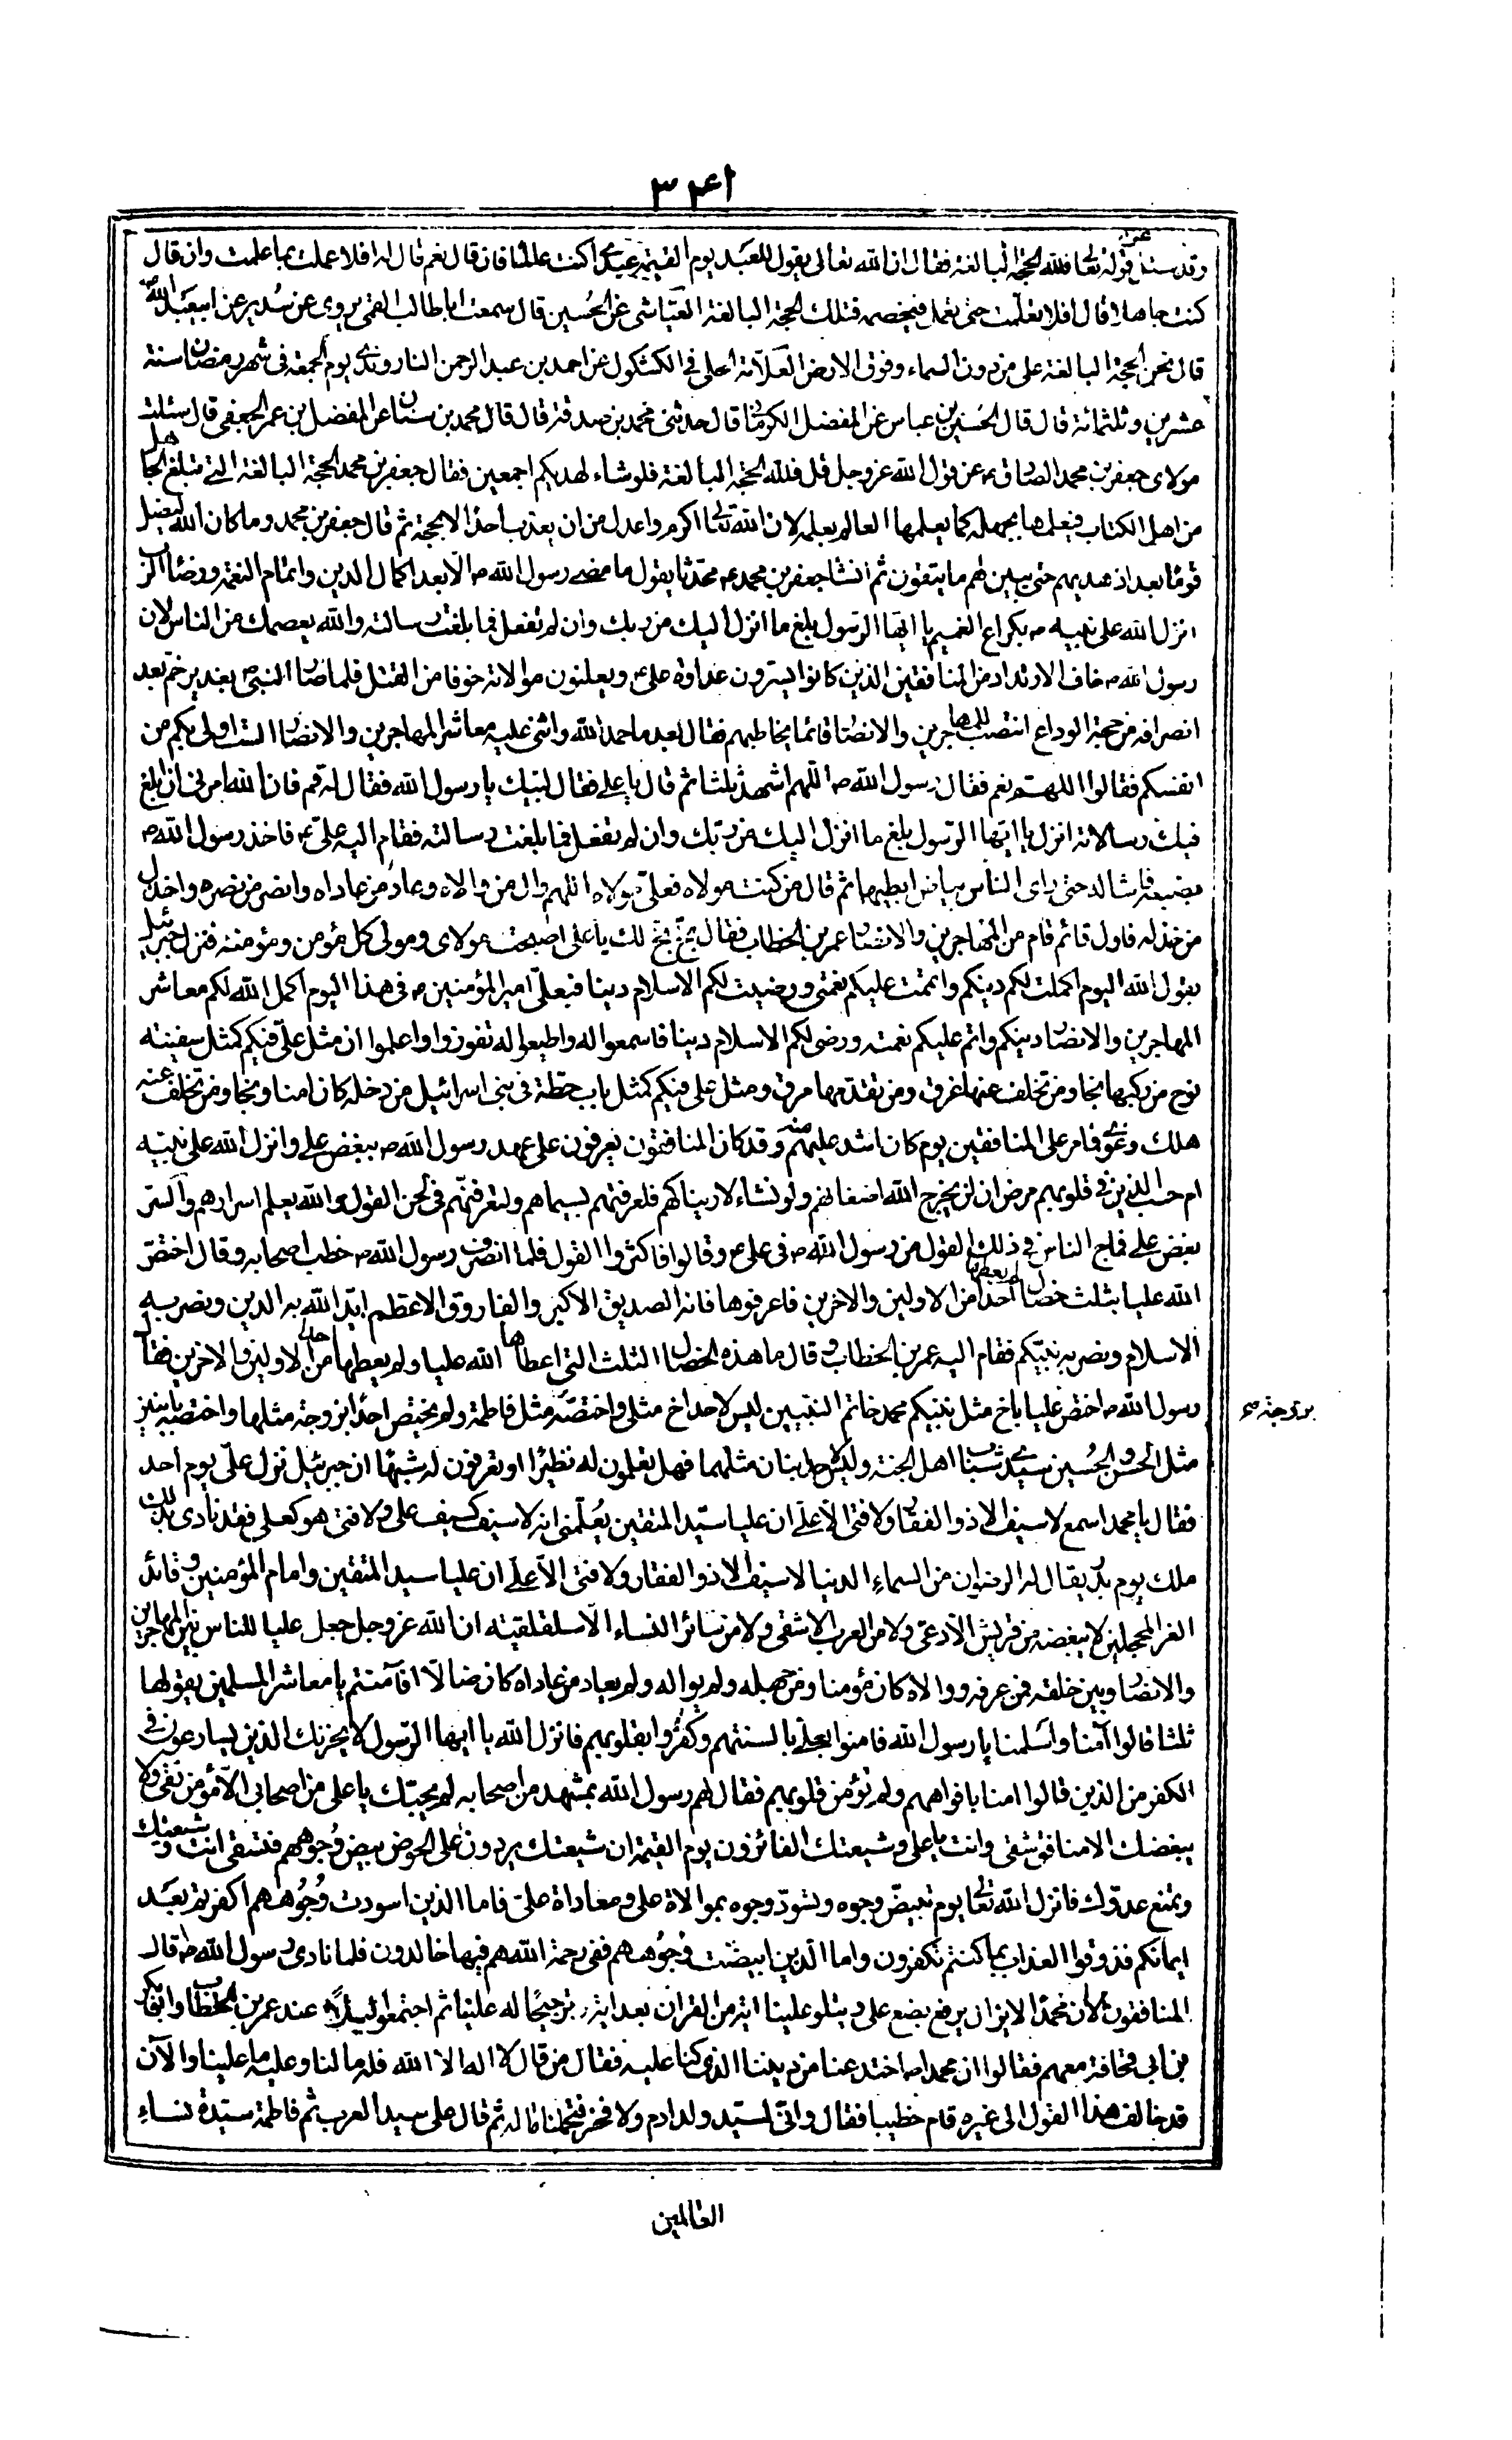 ٣٤١
وقد سئل عن قوله تعالى فلله الحجة البالغة فقال ان الله تعالى يقول للعبد يوم القيمة عبدى اكنت عالما فان قال نعم قال له افلا عملت بما علمت وان قال
كنت جاهلا قال افلا تعلمت حتى تعمل فيخصمه فتلك الحجة البالغة العياشى عن الحسين قال سمعت ابا طالب القمى يروى عن سدير عن ابيعبد الله
قال نحن الحجة البالغة على من دون السماء وفوق الارض العلامة الحلى فى الكشكول عن احمد بن عبد الرحمن الناروندى يوم الجمعة فى شهر رمضان سنة
عشرين وثلثمائة قال قال الحسين بن عباس عن المفضل الكرمانى قال حدثنى محمد بن صدقة قال قال محمد بن سنان عن المفضل بن عمر الجعفى قال سئلت
مولاى جعفر بن محمد الصادق ع عن قول الله عز وجل قل فلله الحجة البالغة فلو شاء لهديكم اجمعين فقال جعفر بن محمد الحجة البالغة التى تبلغ الجاهل
من اهل الكتاب فيعلمها بجهله كما يعلمها العالم بعلمه لان الله تعالى اكرم واعدل من ان يعذب احدا الا بحجة ثم قال جعفر بن محمد وما كان الله ليضل
قوما بعد اذ هديهم حتى يبين لهم ما يتقون ثم انشا جعفر بن محمد ع محدثا يقول ما مضى رسول الله ص الا بعد اكمال الدين واتمام النعمة ورضا الرب
انزل الله على نبيه ص بكراع الغميم يا ايها الرسول بلغ ما انزل اليك من ربك وان لم تفعل فما بلغت رسالته والله يعصمك من الناس لان
رسول الله ص خاف الارتداد من المنافقين الذين كانوا يسترون عداوة على ع ويعلنون موالاته خوفا من القتل فلما صار النبى ص بغدير خم بعد
انصرافه من حجة الوداع انتصب للمهاجرين والانصار قائما يخاطبهم فقال بعد ما حمد الله واثنى عليه معاشر المهاجرين والانصار الست اولى بكم من
انفسكم فقالوا اللهم نعم فقال رسول الله ص اللهم اشهد ثلثا ثم قال يا على فقال لبيك يا رسول الله فقال له قم فان الله امرنى ان ابلغ
فيك رسالاته انزل يا ايها الرسول بلغ ما انزل اليك من ربك وان لم تفعل فما بلغت رسالته فقام اليه على ع فاخذ رسول الله ص
بضبعه فاشاله حتى راى الناس بياض ابطيهما ثم قال من كنت مولاه فعلى مولاه اللهم وال من والاه وعاد من عاداه وانصر من نصره واخذل
من خذله فاول قائم قام من المهاجرين والانصار عمر بن الخطاب فقال بخ بخ لك يا على اصبحت مولاى ومولى كل مؤمن ومؤمنة فنزل جبرئيل
بقول الله اليوم اكملت لكم دينكم واتممت عليكم نعمتى ورضيت لكم الاسلام دينا فبعلى امير المؤمنين ص فى هذا اليوم اكمل الله لكم معاشر
المهاجرين والانصار دينكم واتم عليكم نعمته ورضى لكم الاسلام دينا فاسمعوا له واطيعوا له تفوزوا واعلموا ان مثل على فيكم كمثل سفينة
نوح من ركبها نجا ومن تخلف عنها غرق ومن تقدمها مرق ومثل على فيكم كمثل باب حطة فى بنى اسرائيل من دخله كان امنا ونجا ومن تخلف عنه
هلك وغوى فما مر على المنافقين يوم كان اشد عليهم منه وقد كان المنافقون يعرفون على عهد رسول الله ص ببغض على وانزل الله على نبيه
ام حسب الذين فى قلوبهم مرض ان لن يخرج الله اضغانهم ولو نشاء لاريناكهم فلعرفتهم بسيماهم ولتعرفنهم فى لحن القول والله يعلم اسرارهم والستر
بغض على فماج الناس فى ذلك القول من رسول الله ص فى على ع وقالوا فاكثروا القول فلما انصرف رسول الله ص خطب اصحابه وقال اختص
الله عليا بثلث خصال لم يعطها احدا من الاولين والاخرين فاعرفوها فانه الصديق الاكبر والفاروق الاعظم ايد الله به الدين ونصر به
الاسلام ونصر به نبيكم فقام اليه عمر بن الخطاب وقال ما هذه الخصال الثلث التى اعطاها الله عليا ولم يعطها احدا من الاولين والاخرين فقال
رسول الله ص اختص عليا باخ مثل نبيكم محمد خاتم النبيين ليس لاحد اخ مثلى واختصه مثل فاطمة ولم يختص احدا بزوجة مثلها واختصه بابنين
بزوجة صح
مثل الحسن والحسين سيدى شباب اهل الجنة وليس لاحد ابنان مثلهما فهل تعلمون له نظيرا او تعرفون له شبها ان جبرئيل نزل على يوم احد
فقال يا محمد اسمع لا سيف الا ذو الفقار ولا فتى الا على ان عليا سيد المتقين يعلمنى انه لا سيف كسيف على ولا فتى هو كعلى فقد نادى بذلك
ملك يوم بدر يقال له الرضوان من السماء الدنيا لا سيف الا ذو الفقار ولا فتى الا على ان عليا سيد المتقين وامام المؤمنين وقائد
الغر المحجلين لا يبغضه من قريش الا دعى ولا من العرب الا شقى ولا من سائر النساء الا سلقلقية ان الله عز وجل جعل عليا للناس بين المهاجرين
والانصار وبين خلقه فمن عرفه ووالاه كان مؤمنا ومن جهله ولم يواله ولم يعاد من عاداه كان ضالا افآمنتم يا معاشر المسلمين يقولها
ثلثا قالوا آمنا واسلمنا يا رسول الله فامنوا بعلى بالسنتهم وكفروا بقلوبهم فانزل الله يا ايها الرسول لا يحزنك الذين يسارعون فى
الكفر من الذين قالوا امنا بافواههم ولم تؤمن قلوبهم فقال لهم رسول الله بمشهد من اصحابه لم يحبك يا على من اصحابى الا مؤمن تقى ولا
يبغضك الا منافق شقى وانت يا على وشيعتك الفائزون يوم القيمة ان شيعتك يردون على الحوض بيض وجوههم فتسقى انت وشيعتك
وتمنع عدوك فانزل الله تعالى يوم تبيض وجوه وتسود وجوه بموالاة على ومعاداة على فاما الذين اسودت وجوههم اكفرتم بعد
ايمانكم فذوقوا العذاب بما كنتم تكفرون واما الذين ابيضت وجوههم ففى رحمة الله هم فيها خالدون فلما نادى رسول الله ص قال
المنافقون الان محمدا لا يزال يرفع بضبع على ويتلو علينا اية من القران بعد اية ترجيحا له علينا ثم اجتمعوا ليلا عند عمر بن الخطاب وابو بكر
بن ابى قحافة معهم فقالوا ان محمدا ص اختدعنا من ديننا الذى كنا عليه فقال من قال لا اله الا الله فله ما لنا وعليه ما علينا والآن
قد خالف هذا القول الى غيره قام خطيبا فقال وانى لسيد ولد ادم ولا فخر فتحملنا ثم قال على سيد العرب ثم فاطمة سيدة نساء
العالمين